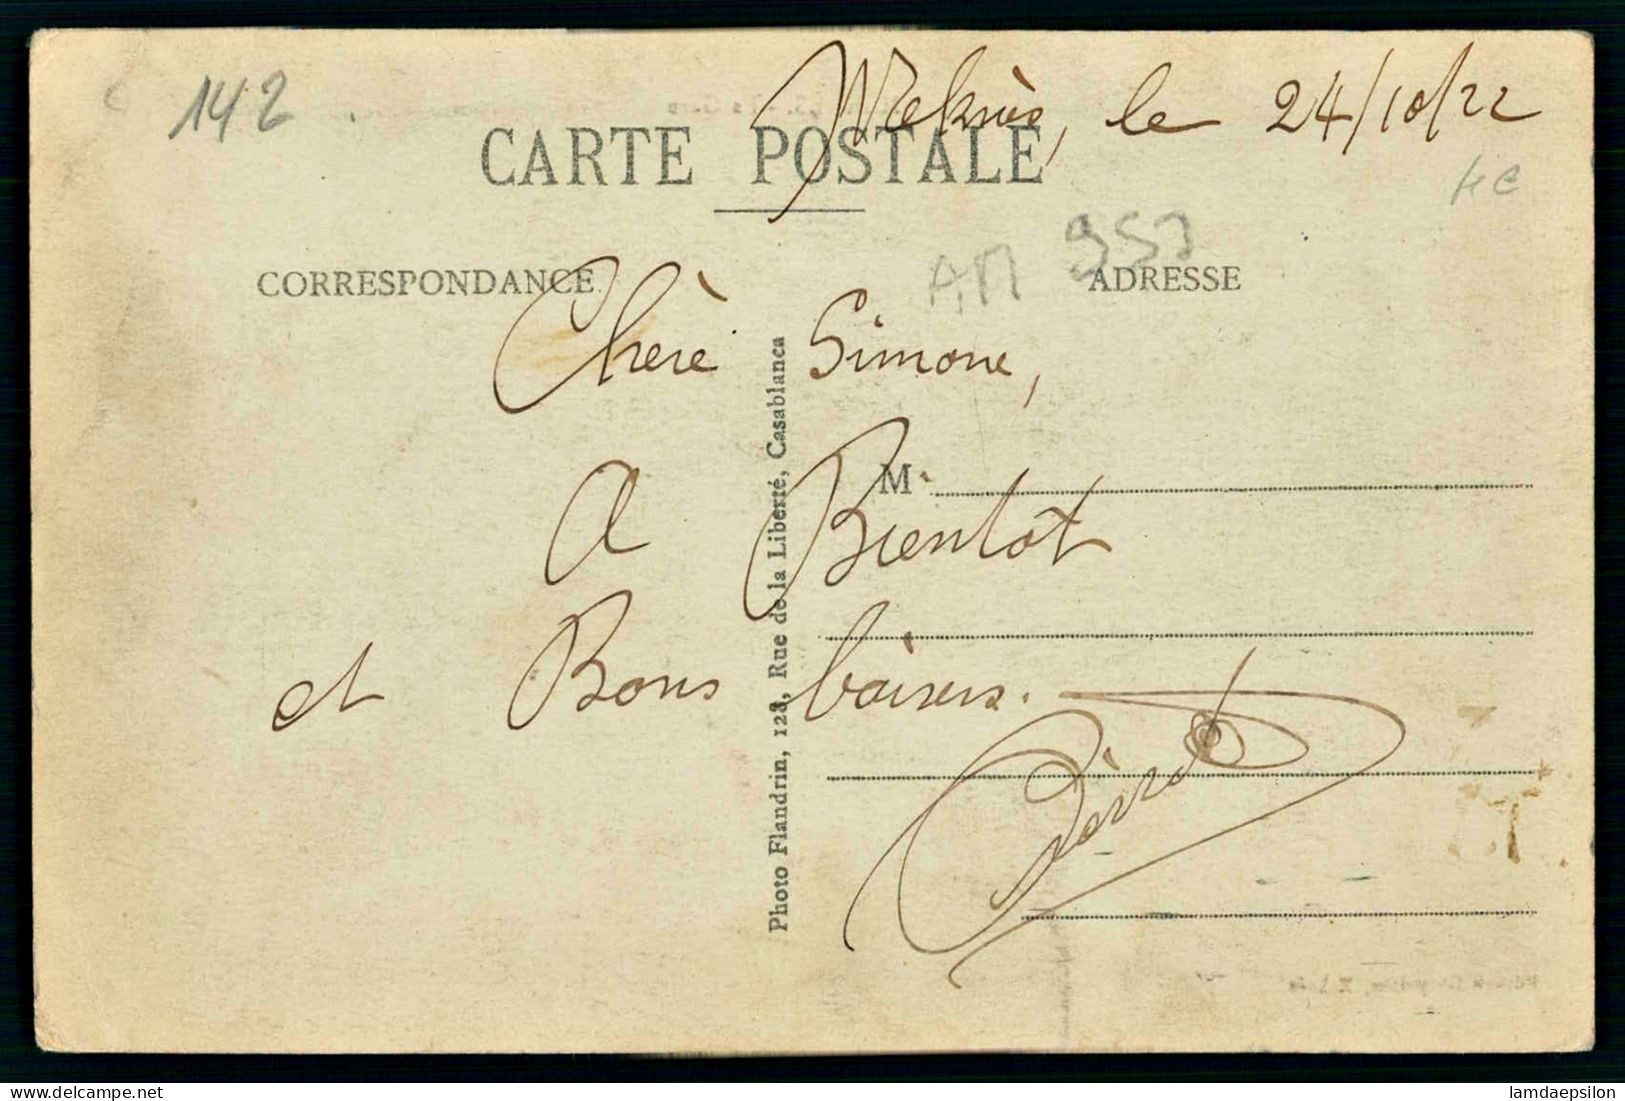 142
Meknès, le 24/10/22
CARTE POSTALE
CORRESPONDANCE
ADRESSE
AM 953
Chère Simone,
A Bientôt
et Bons baisers.
M.
Photo Flandrin, 123, Rue de la Liberté, Casablanca
www.delcampe.net
lamdaepsilon